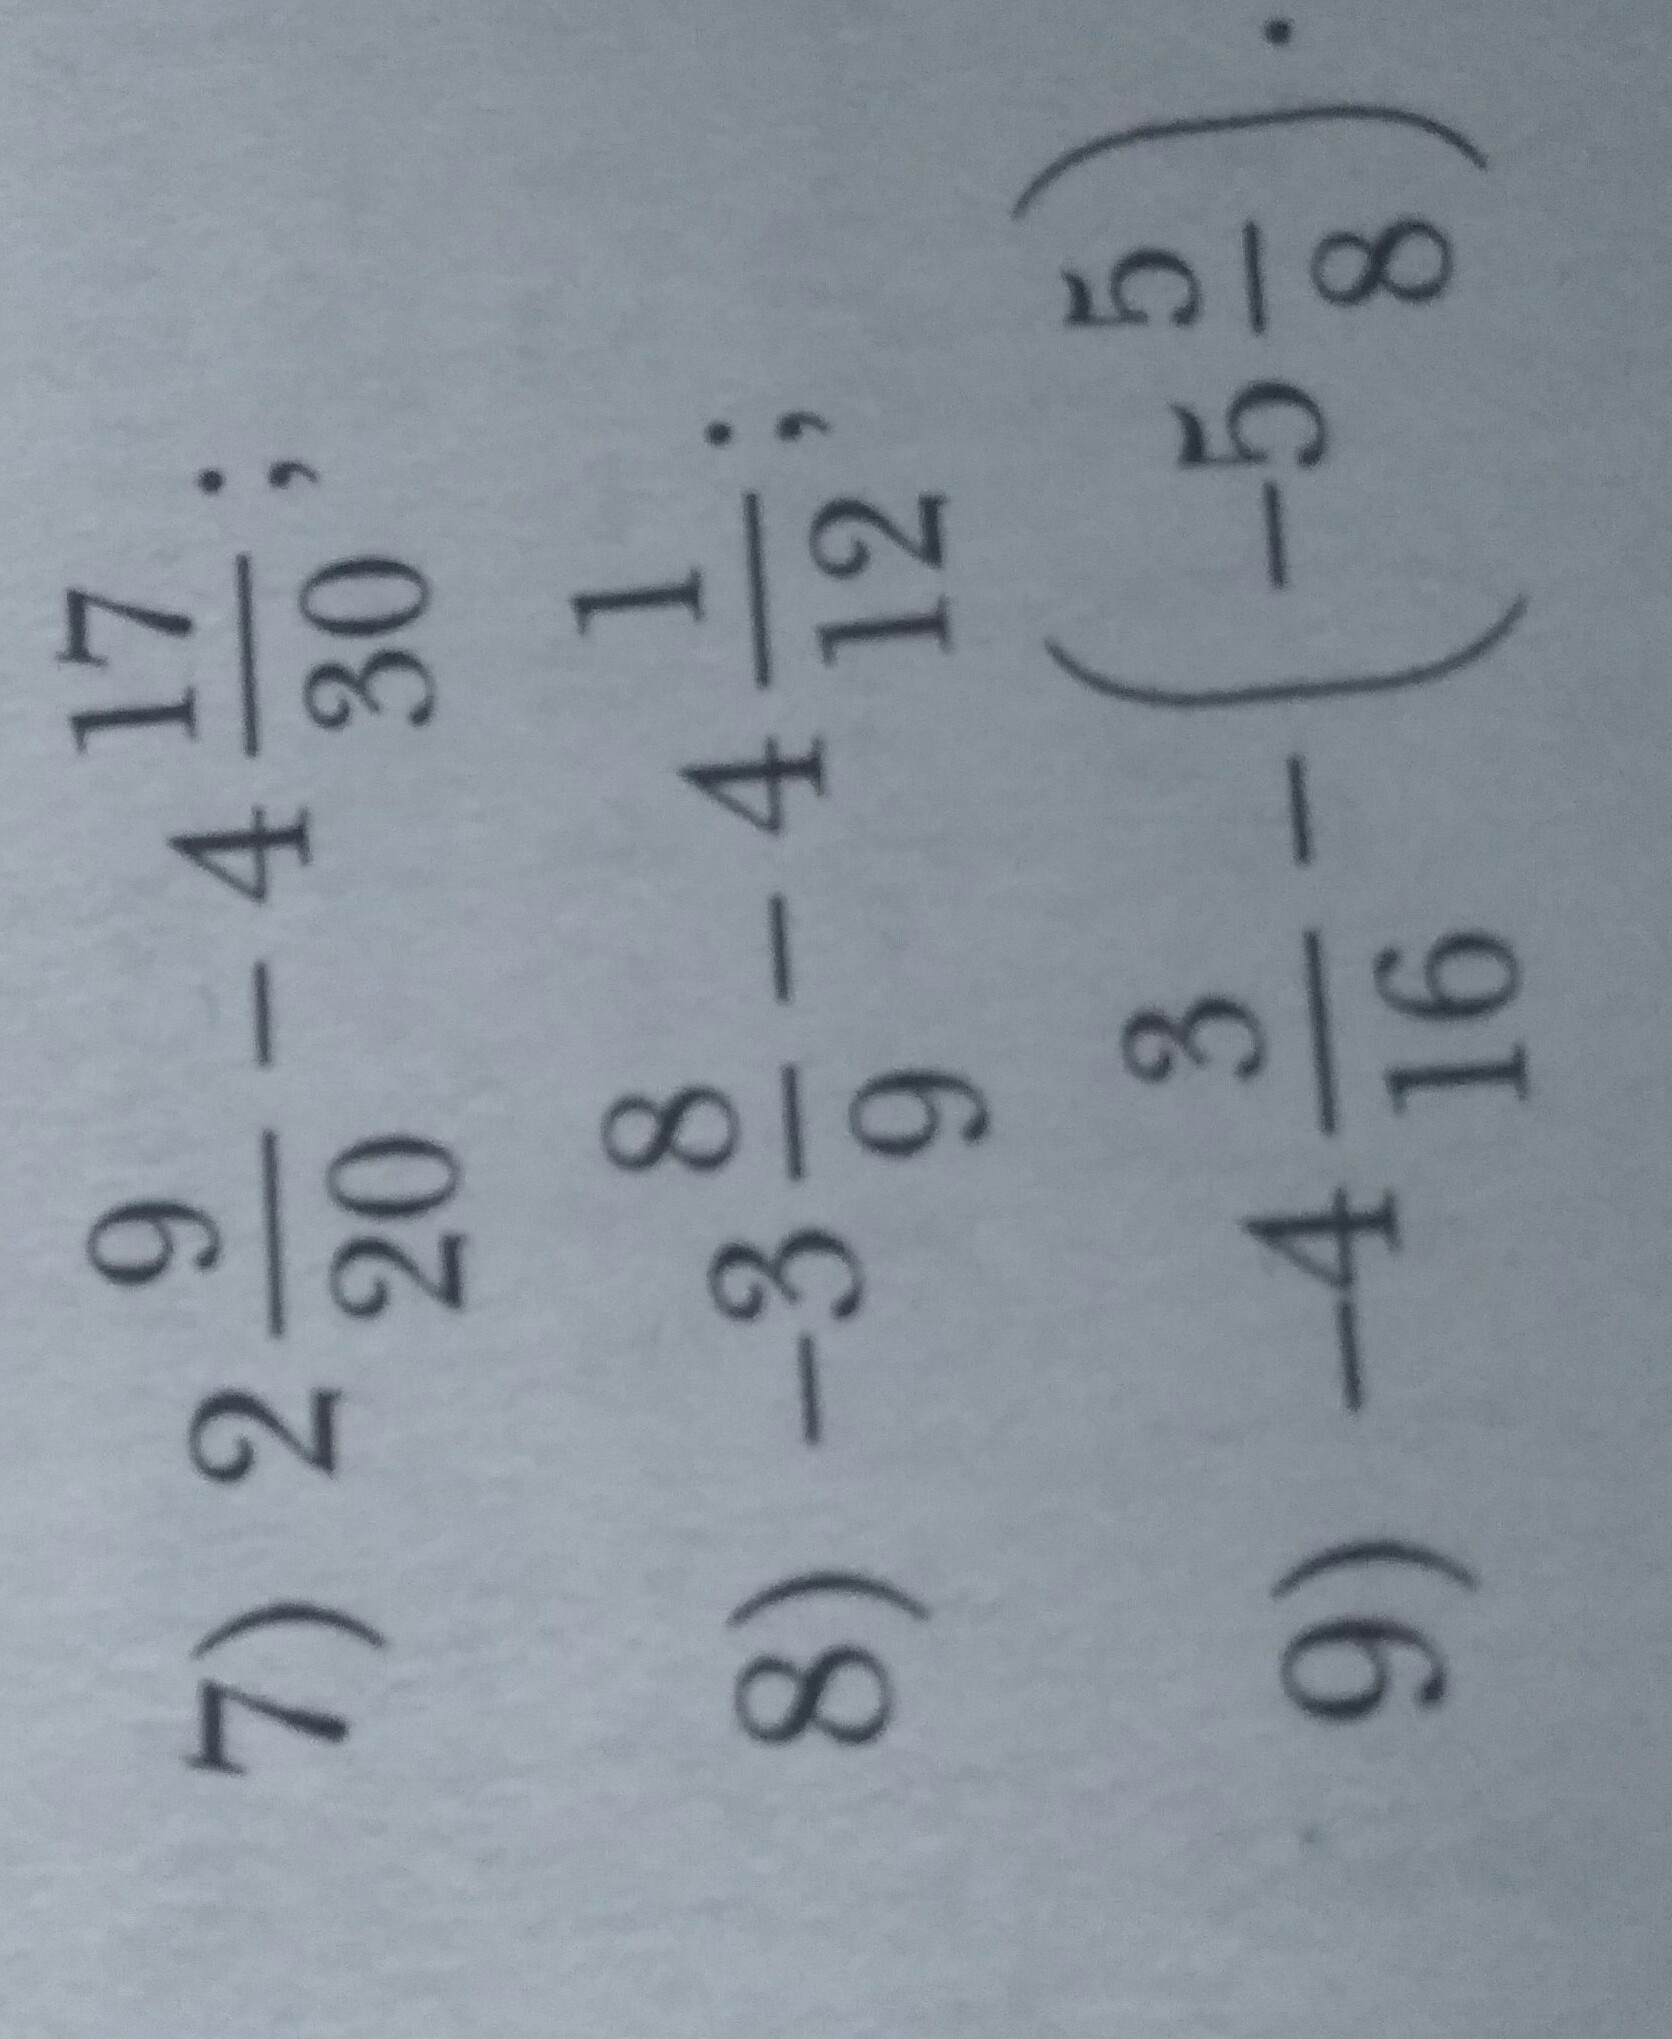 7) 2 9/20 − 4 17/30;
8) −3 8/9 − 4 1/12;
9) −4 3/16 − (−5 5/8).